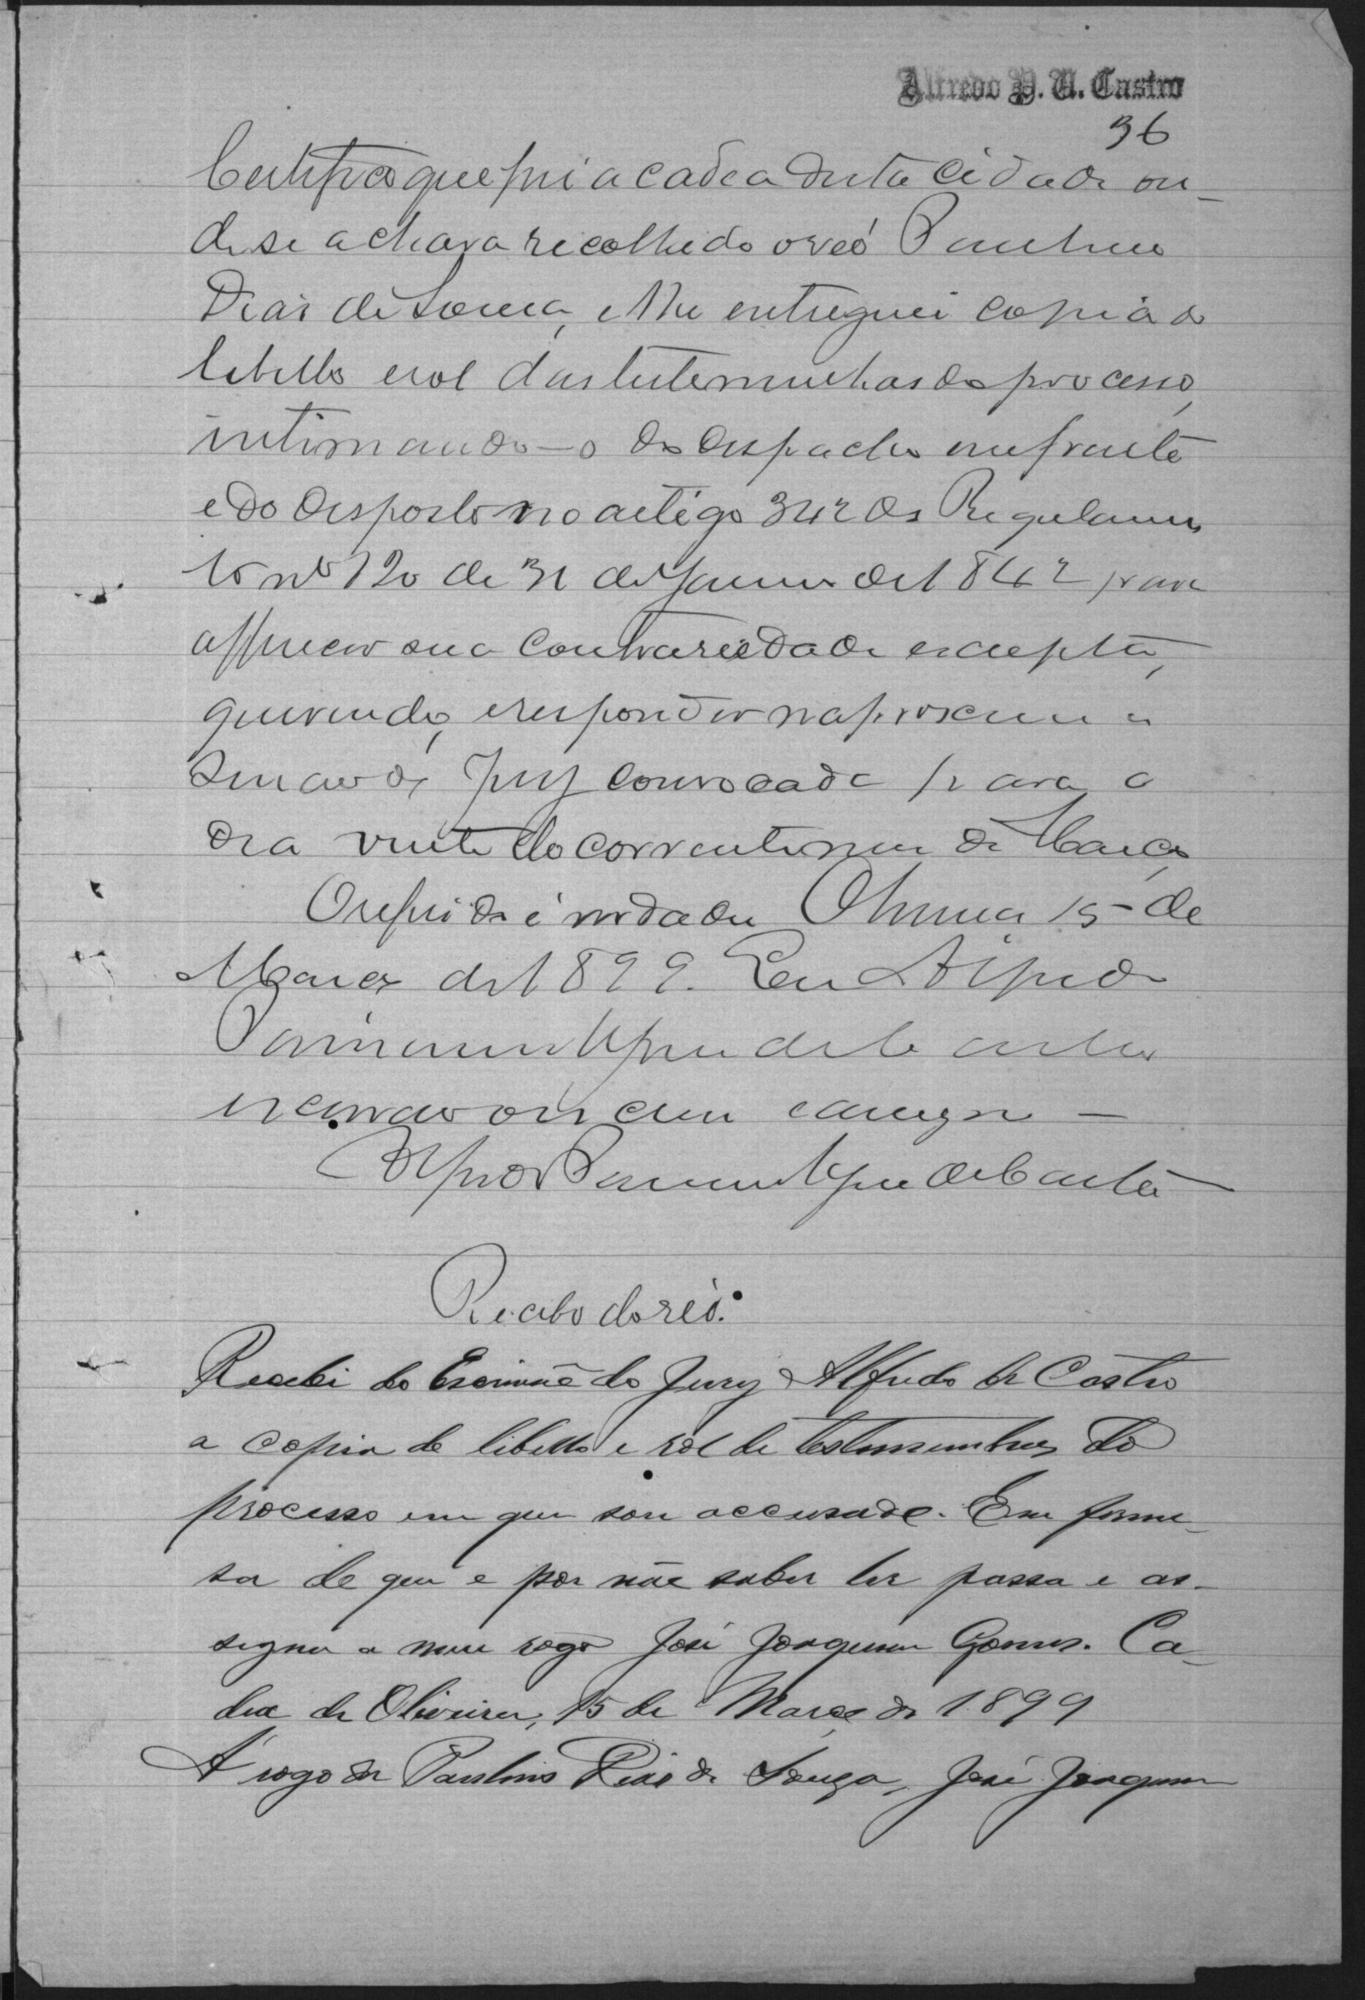 Alfredo P. U. Castro
36
Certifico que fui a cadea desta cidade on-
de se achava recolhido o reó Paulino
Dias de Souza, e lhe entreguei copia do
libello e rol das testemunhas do processo,
intimando-o do despacho em frente
e do disposto no artigo 342 do Regulamen
to nº 120 de 31 de Janeiro de 1842 para
offerecer sua contrariedade escripta,
querendo, e responder na proxima
sessão do Jury convocada para o
dia vinte do corrente mez de Março
O referido é verdade. Oliveira 15 de
Março de 1899. Eu Alfredo
de Castro
escrivão o escrevi e assigno
Alfredo de Castro
Recibo do reó.
Recebi do Escrivão do Jury Alfredo de Castro
a copia do libello e rol de testemunhas do
processo em que sou accusado. Em firme-
sa de que e por não saber ler passa e as-
signa a meu rogo José Joaquim Gomes. Ca-
dea de Oliveira, 15 de Março de 1899
A rogo de Paulino Dias de Souza, José Joaquim